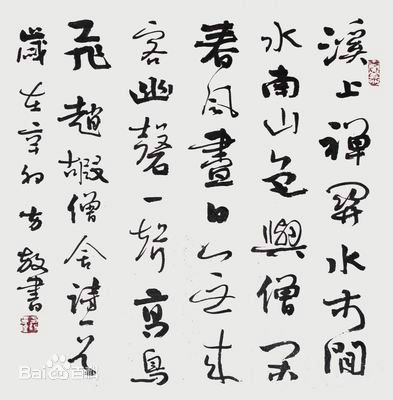 溪上禪關水木間
水南山色與僧閑
春風盡日無來
客幽磬一聲高鳥
飛 趙嘏僧舍詩一首
歲在辛卯 書
Bai 百科